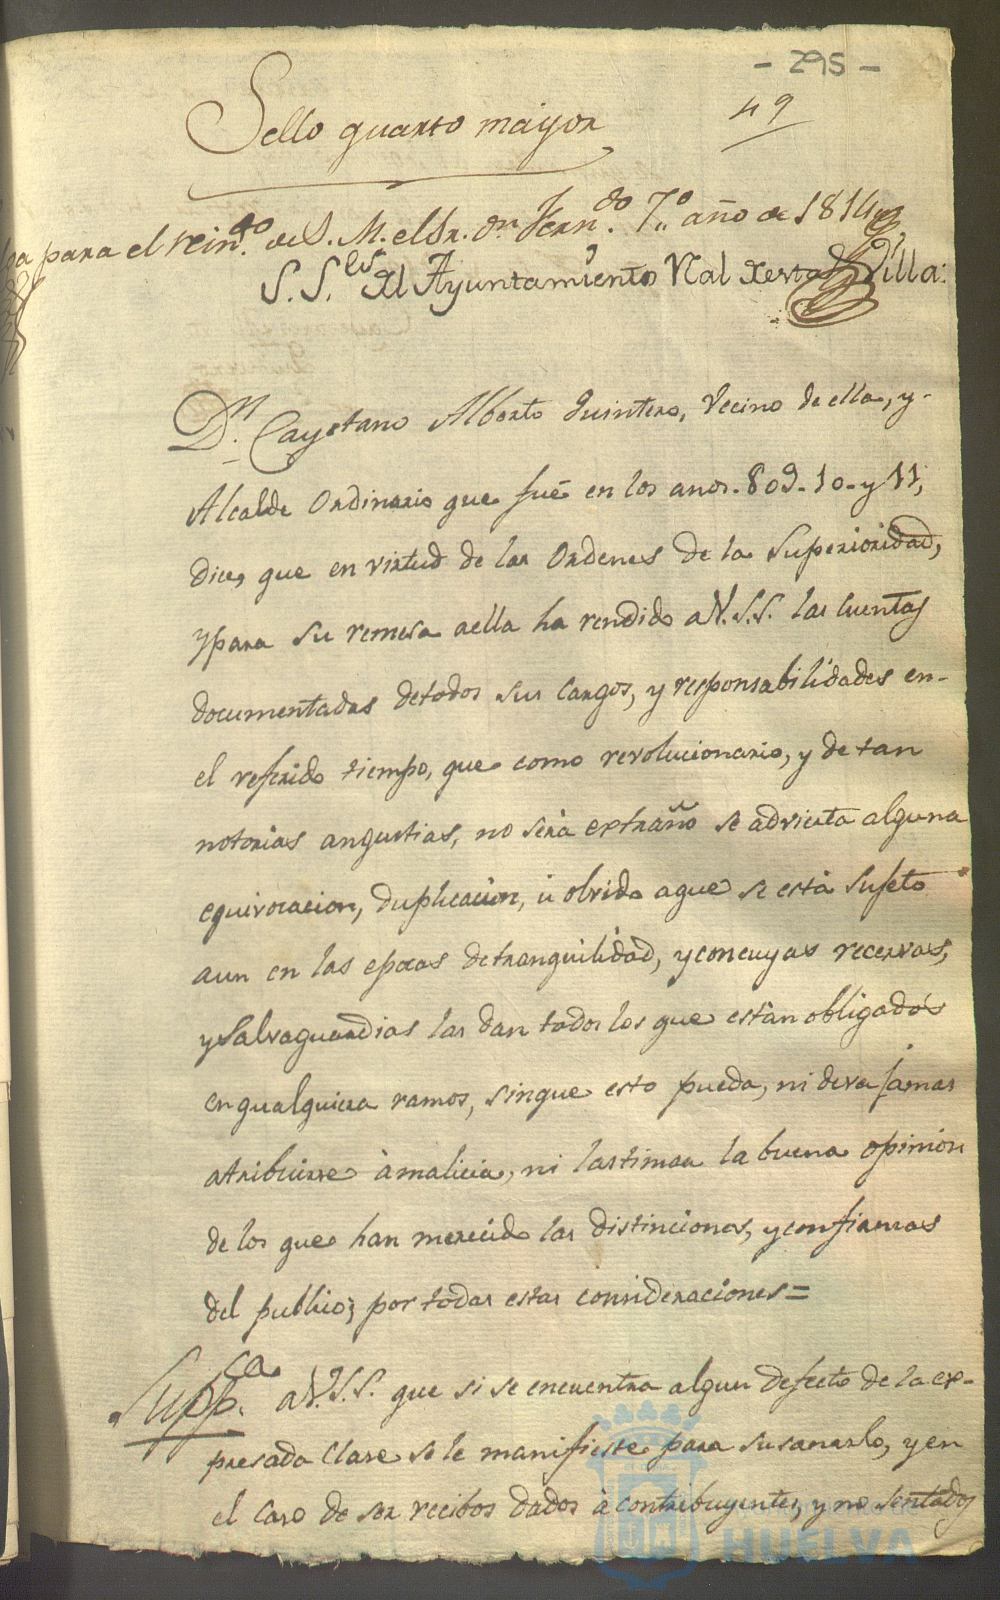 - 295 -
49
Sello quarto mayor
para el rein.do de S. M. el Sr. Dn. Fern.do 7.o año de 1814
S. S.es del Ayuntamiento Ral de esta Villa:
D.n Cayetano Alberto Quintero, Vecino de ella, y-
Alcalde Ordinario que fué en los anos. 809-10- y 11,
dice, que en virtud de las Ordenes de la Superioridad,
ypara su remesa aella ha rendido aV.S.S. las Cuentas
documentadas detodos sus Cargos, y responsabilidades en-
el referido tiempo, que como revolucionario, y de tan
notorias angustias, no será extraño se advierta alguna
equivocacion, duplicacion, ú olvido aque se está Sujeto
aun en las epocas detranquilidad, yconcuyas recervas,
ySalvaguardias las dan todos los que están obligados
enqualquiera ramos, sinque esto pueda, ni deva jamas
atribuirse àmalicia, ni lastimar la buena opinion
de los que han merecido las distinciones, yconfianzas
del publico; por todas estas consideraciones=
Supp.ca aV.S.S. que si se encuentra algun defecto de la ex-
presada Clase se le manifieste para susanarlo, y en
el caso de ser recibos dados à contribuyentes, y no sentados
HUELVA